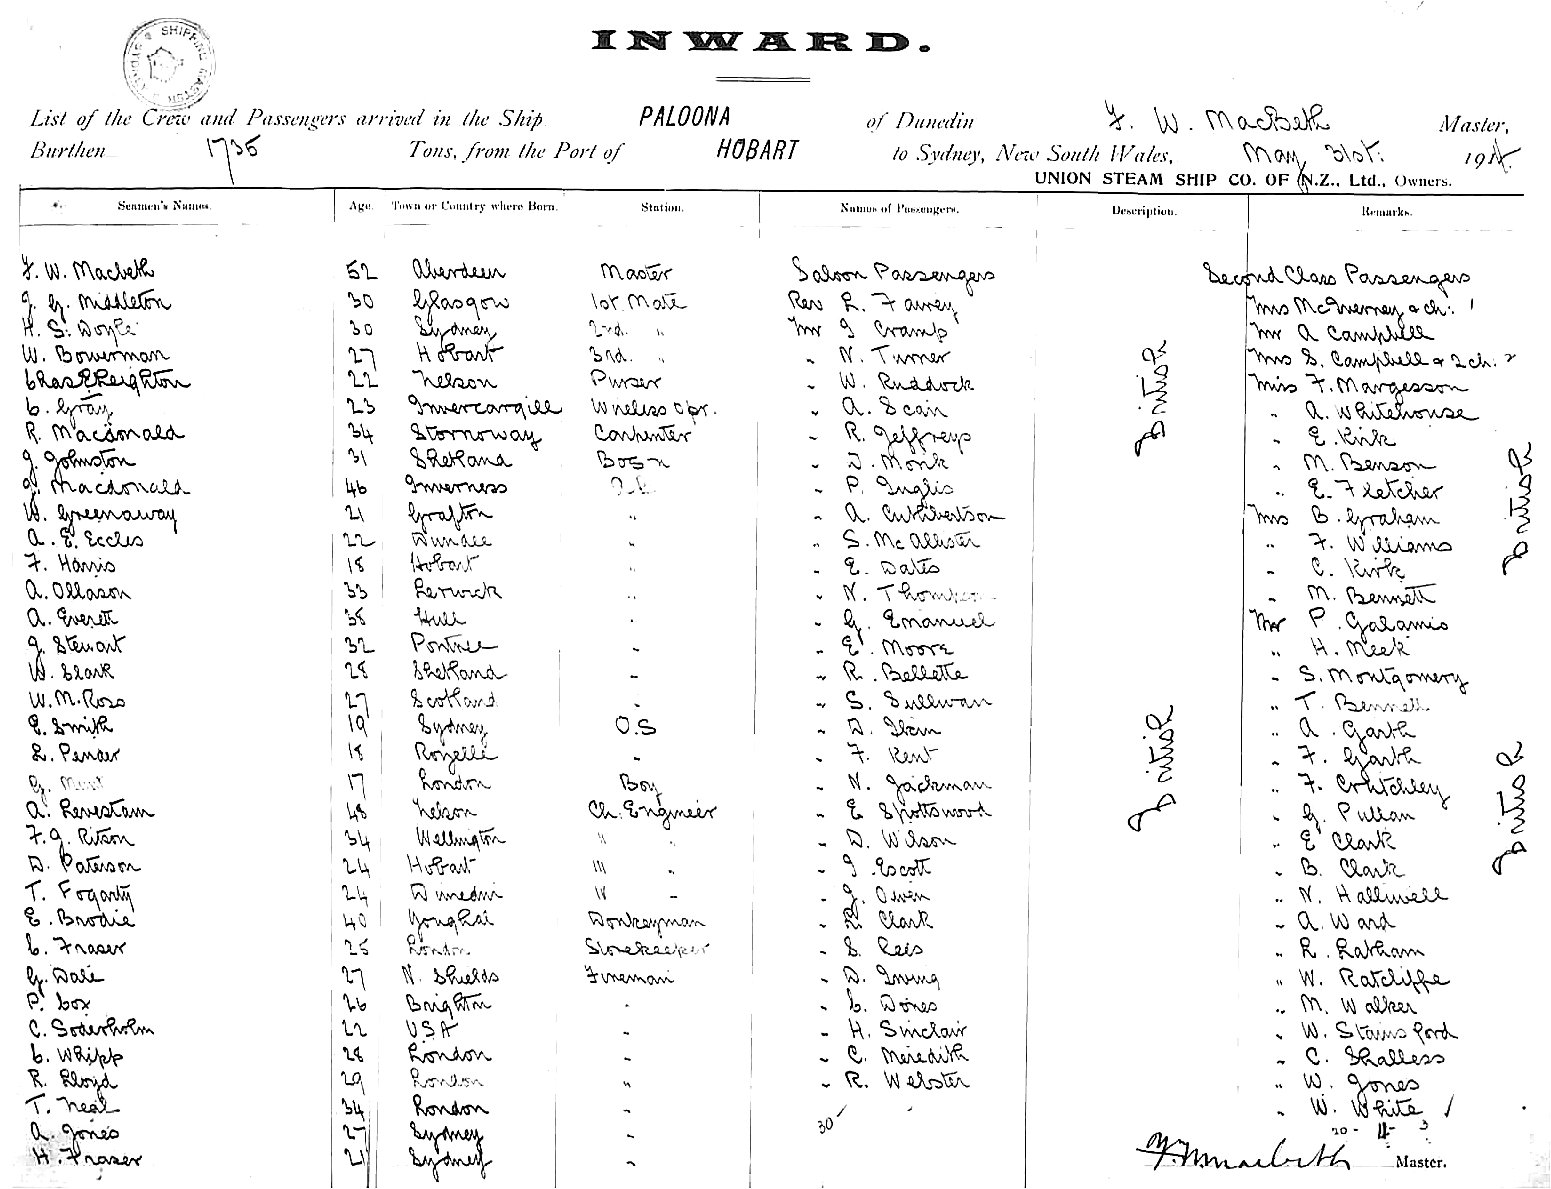 SHIPPING MASTER SYDNEY
INWARD.
List of the Crew and Passengers arrived in the Ship PALOONA of Dunedin F. W. MacBeth Master,
Burthen 1735 Tons, from the Port of HOBART to Sydney, New South Wales, May 31st. 191
UNION STEAM SHIP CO. OF N.Z., Ltd., Owners.
Seamen's Names. Age. Town or Country where Born. Station. Names of Passengers. Description. Remarks.
F. W. Macbeth 52 Aberdeen Master Saloon Passengers Second Class Passengers
J. G. Middleton 30 Glasgow 1st Mate Rev L. Mrs McInerney & ch: 1
H. S. Doyle 30 Sydney 2nd. " Mr J Cramp Mr A Campbell
W. Bowerman 27 Hobart 3rd. " " N. Turner Mrs S. Campbell & 2 ch. 2
Chas E Leighton 22 Nelson Purser " W. Ruddock Miss F. Margesson
C. Gray 23 Invercargill Wireless Opr. " A. Scair " A. Whitehouse
R. Macdonald 34 Stornoway Carpenter " R. Jeffreys " E. Kirk
J. Johnston 31 Shetland Bosn " D. Monk " M. Benson
J. Macdonald 46 Inverness A.B. " P. Inglis " E. Fletcher
W. Greenaway 21 Grafton " " A. Cuthbertson Mrs B. Graham
A. E. Eccles 22 Dundee " " S. McAllister " F. Williams
F. Harris 18 Hobart " " E. Oates " C. Kirk
A. Ollason 33 Lerwick " " N. Thompson " M. Bennett
A. Everett 38 Hull " " G. Emanuel Mr P. Galamis
J. Stewart 32 Portree " " E. Moore " H. Meek
W. Slark 28 Shetland " " R. Bellette " S. Montgomery
W. M. Ross 27 Scotland " " S. Sullivan " T. Bennett
E. Smith 19 Sydney O.S " D. Ikin " A. Garth
L. Pender 18 Rozelle " " F. Kent " F. Garth
G. 17 London Boy " N. Jackman " F. Critchley
A. Levestam 48 Nelson Ch. Engineer " E Spottswood " G. Pullan
F. J. Ritson 34 Wellington " " " D. Wilson " E Clark
D. Paterson 24 Hobart III " " J Escott " B. Clark
T. Fogarty 24 Dunedin IV " " J. Owen " N. Halliwell
E. Brodie 40 Youghal Donkeyman " L. Clark " A. Ward
C. Fraser 25 London Storekeeper " S. Lees " L. Latham
G. Dale 27 N. Shields Fireman " D. Irving " W. Ratcliffe
P. Cox 26 Brighton " " C. Dones " M. Walker
C. Soderholm 22 USA " " H. Sinclair " W. Stainsford
C. Whipp 28 London " " C. Meredith " C. Shalless
R. Lloyd 29 London " " R. Webster " W. Jones
T. Neal 34 London " " W. White
A. Jones 27 Sydney " 30 20 - 11 - 3
H. Fraser 21 Sydney " F. W. Macbeth Master.
British
British
British
British